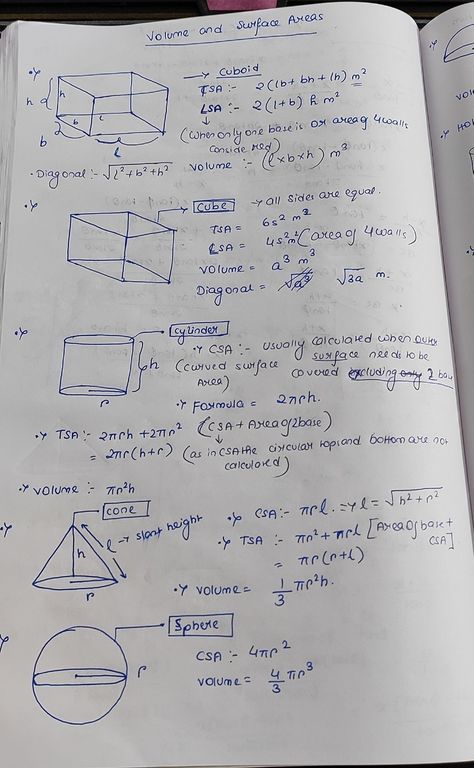 Volume and Surface Areas
→ Cuboid
TSA :- 2(lb + bh + lh) m²
LSA :- 2(l+b) h m²
(When only one base is or area of 4 walls
considered)
h d h
b l
b
l
• Diagonal :- √l² + b² + h² Volume :- (l × b × h) m³
Cube → all sides are equal.
TSA = 6s² m²
LSA = 4s² m² (area of 4 walls)
Volume = a³ m³
Diagonal = √3a m.
Cylinder
CSA :- Usually calculated when outer
(curved surface surface needs to be
Area) covered excluding 2 bas
h
r
Formula = 2πrh
TSA :- 2πrh + 2πr² (CSA + Area of 2 base)
= 2πr(h+r) (as in CSA the circular top and bottom are not
calculated)
Volume :- πr²h
Cone
l → slant height
h
r
CSA :- πrl. ⇒ l = √h² + r²
TSA :- πr² + πrl [Area of base +
CSA]
= πr(r+l)
Volume = 1/3 πr²h.
Sphere
r
CSA :- 4πr²
Volume = 4/3 πr³